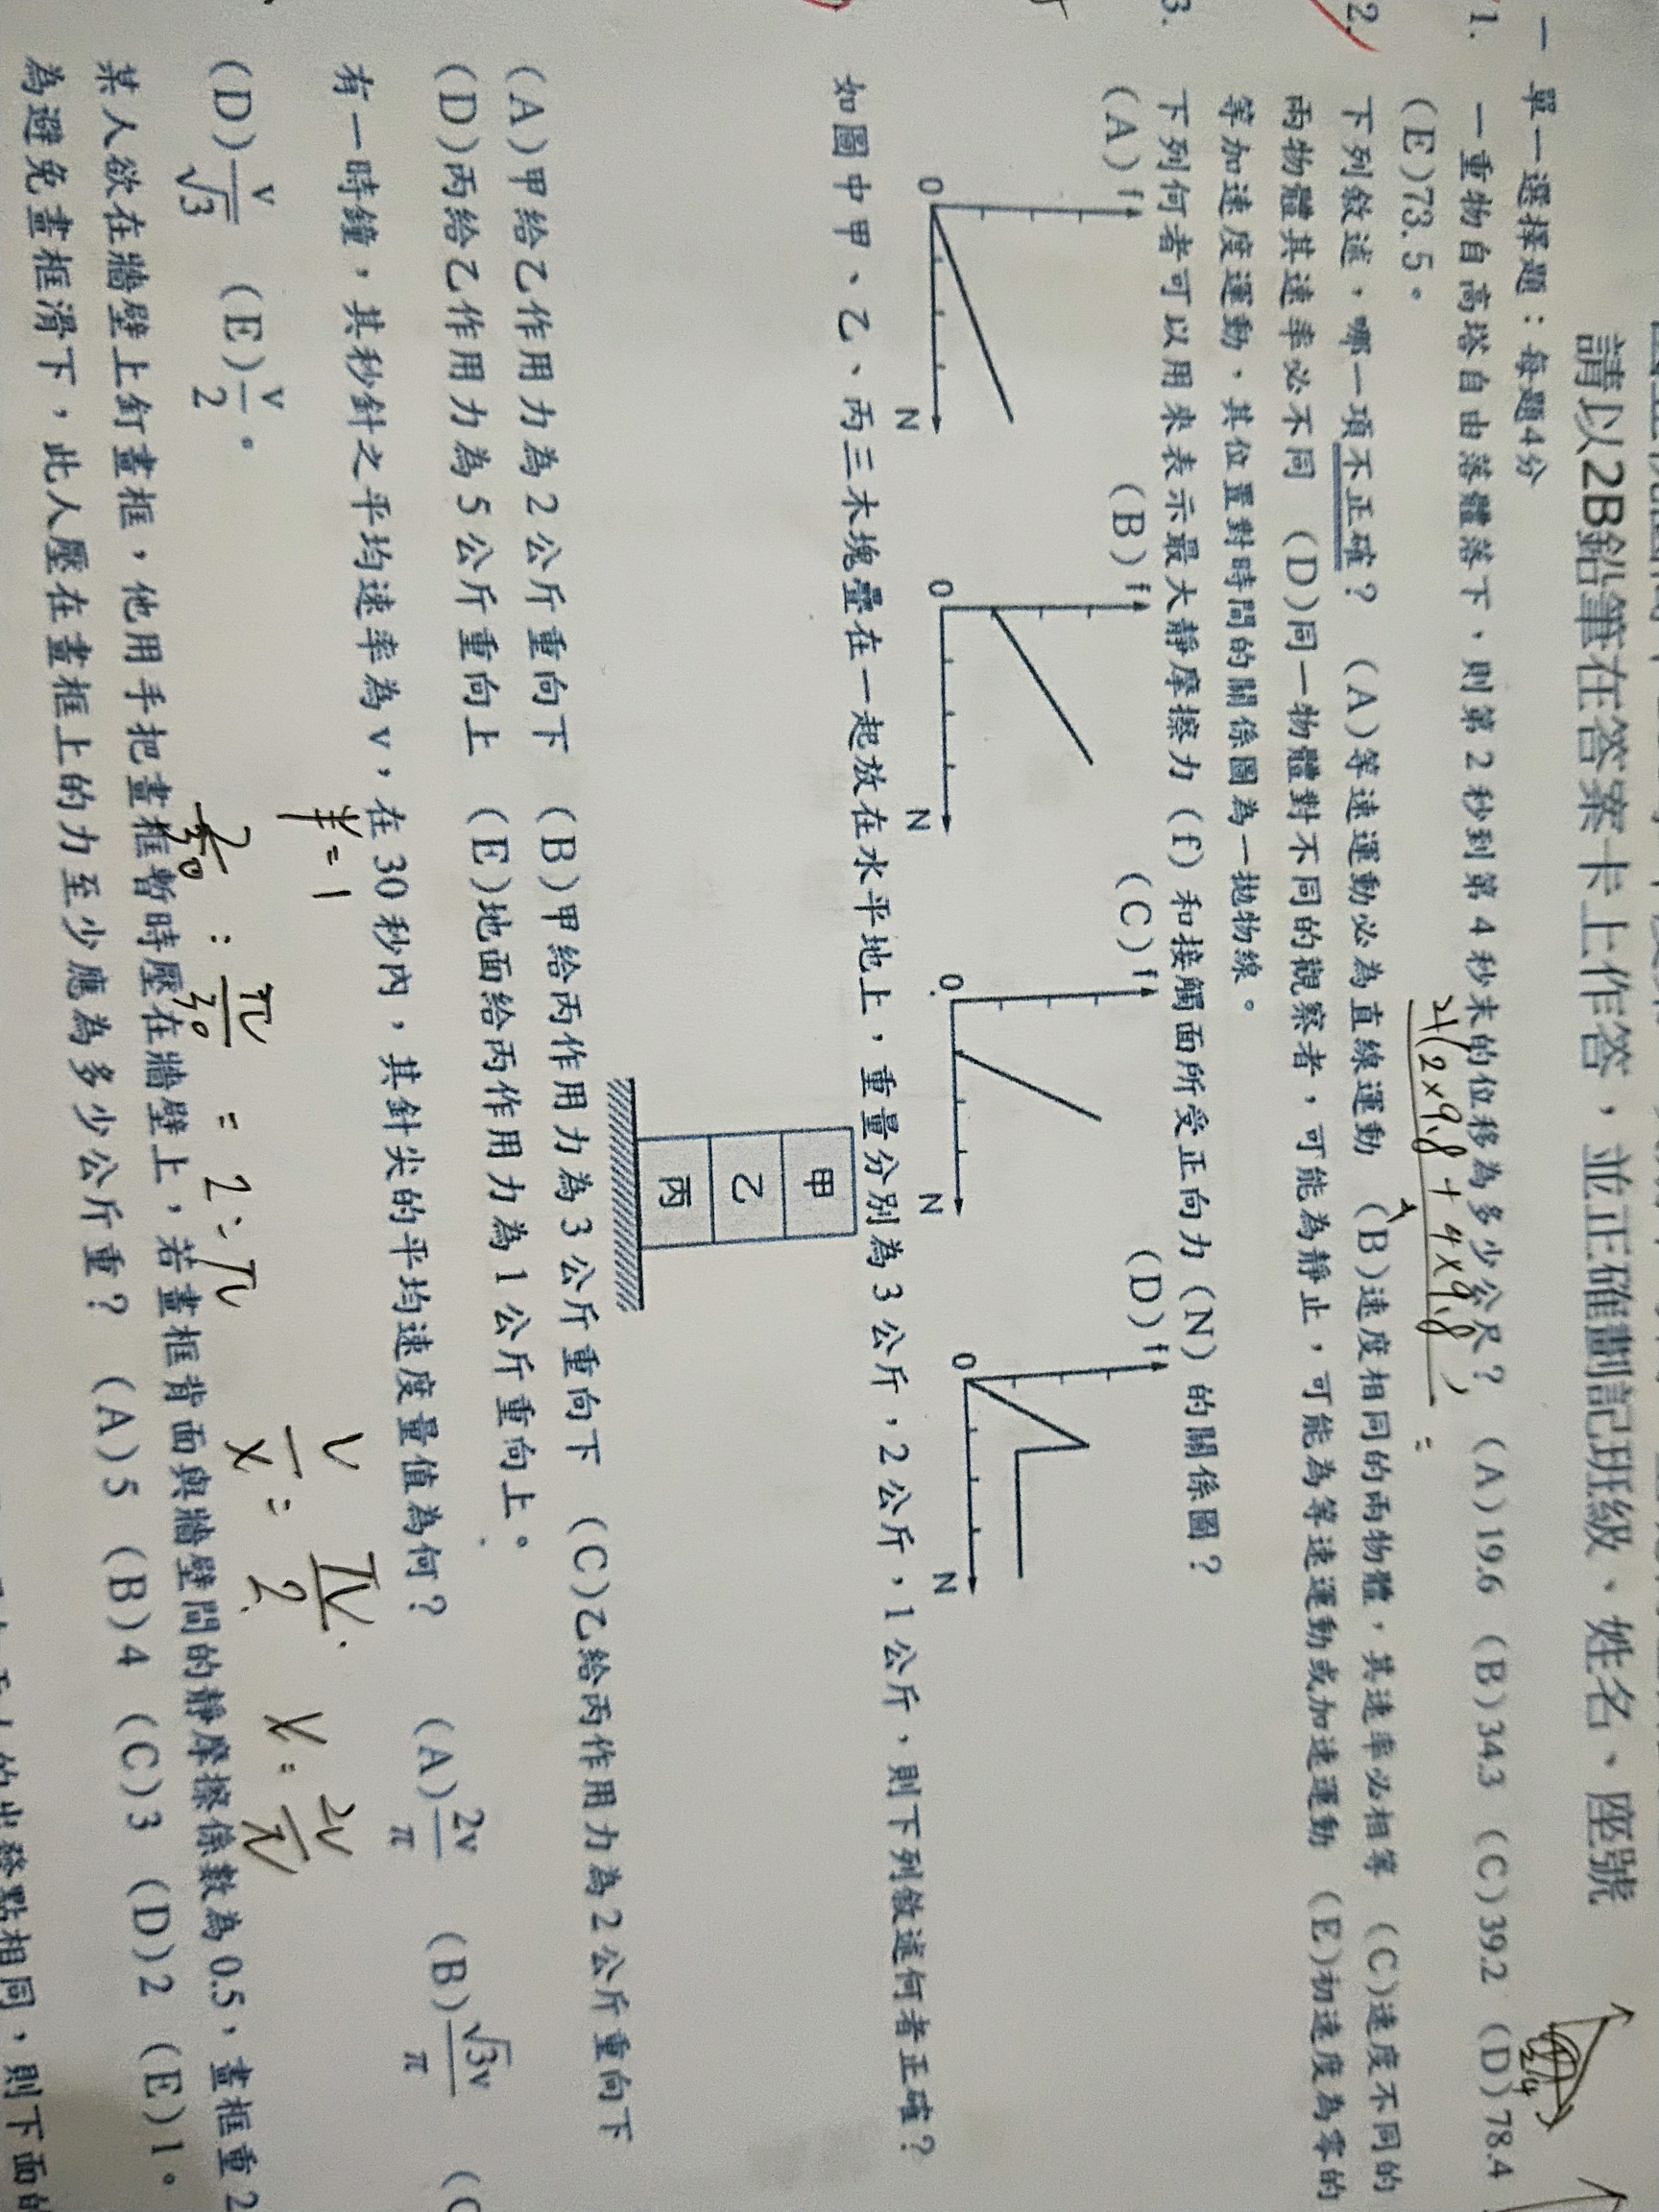 請以2B鉛筆在答案卡上作答，並正確劃記班級、姓名、座號
一 單一選擇題：每題4分
1. 一重物自高塔自由落體落下，則第2秒到第4秒末的位移為多少公尺？ (A)19.6 (B)34.3 (C)39.2 (D)78.4
(E)73.5。
2(2×9.8+4×9.8) =
2. 下列敘述，哪一項不正確？ (A)等速運動必為直線運動 (B)速度相同的兩物體，其速率必相等 (C)速度不同的
兩物體其速率必不同 (D)同一物體對不同的觀察者，可能為靜止，可能為等速運動或加速運動 (E)初速度為零的
等加速度運動，其位置對時間的關係圖為一拋物線。
3. 下列何者可以用來表示最大靜摩擦力(f)和接觸面所受正向力(N)的關係圖？
(A) f 0 N (B) f 0 N (C) f 0 N (D) f 0 N
如圖中甲、乙、丙三木塊疊在一起放在水平地上，重量分別為3公斤，2公斤，1公斤，則下列敘述何者正確？
甲
乙
丙
(A)甲給乙作用力為2公斤重向下 (B)甲給丙作用力為3公斤重向下 (C)乙給丙作用力為2公斤重向下
(D)丙給乙作用力為5公斤重向上 (E)地面給丙作用力為1公斤重向上。
有一時鐘，其秒針之平均速率為v，在30秒內，其針尖的平均速度量值為何？ (A)2v/π (B)√3v/π (C
(D)v/√3 (E)v/2。
2/30 : π/30 = 2:π
v/x = π/2
πv
2v/π
某人欲在牆壁上釘畫框，他用手把畫框暫時壓在牆壁上，若畫框背面與牆壁間的靜摩擦係數為0.5，畫框重2
為避免畫框滑下，此人壓在畫框上的力至少應為多少公斤重？ (A)5 (B)4 (C)3 (D)2 (E)1。
的出發點相同，則下面的